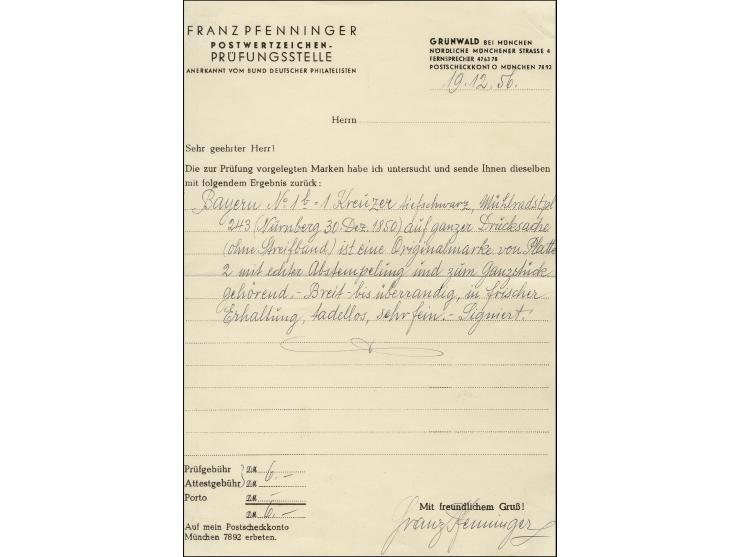 FRANZ PFENNINGER
POSTWERTZEICHEN-
PRÜFUNGSSTELLE
ANERKANNT VOM BUND DEUTSCHER PHILATELISTEN
GRÜNWALD BEI MÜNCHEN
NÖRDLICHE MÜNCHENER STRASSE 4
FERNSPRECHER 476378
POSTSCHECKKONTO MÜNCHEN 7892
19.12.56.
Herrn
Sehr geehrter Herr!
Die zur Prüfung vorgelegten Marken habe ich untersucht und sende Ihnen dieselben
mit folgendem Ergebnis zurück:
Bayern No 1b = 1 Kreuzer tiefschwarz, Mühlradstpl
243 (Nürnberg 30. Dez. 1850) auf ganzer Drucksache
(ohne Streifband) ist eine Originalmarke von Platte
2 mit echter Abstempelung und zum Ganzstück
gehörend.- Breit- bis überrandig, in frischer
Erhaltung, tadellos, sehr fein.- Signiert.
Prüfgebühr 6.-
Attestgebühr
Porto -
6.-
Auf mein Postscheckkonto
München 7892 erbeten.
Mit freundlichem Gruß!
Franz Pfenninger